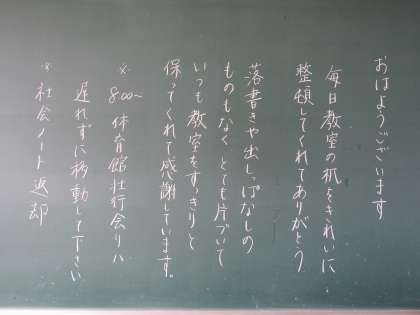 おはようございます
毎日教室の机をきれいに
整頓してくれてありがとう
落書きや出しっぱなしの
ものもなく とても片づいて
いつも教室をすっきりと
保ってくれて感謝しています。
※ 8:00〜 体育館壮行会りハ
遅れずに移動して下さい
※ 社会ノート返却